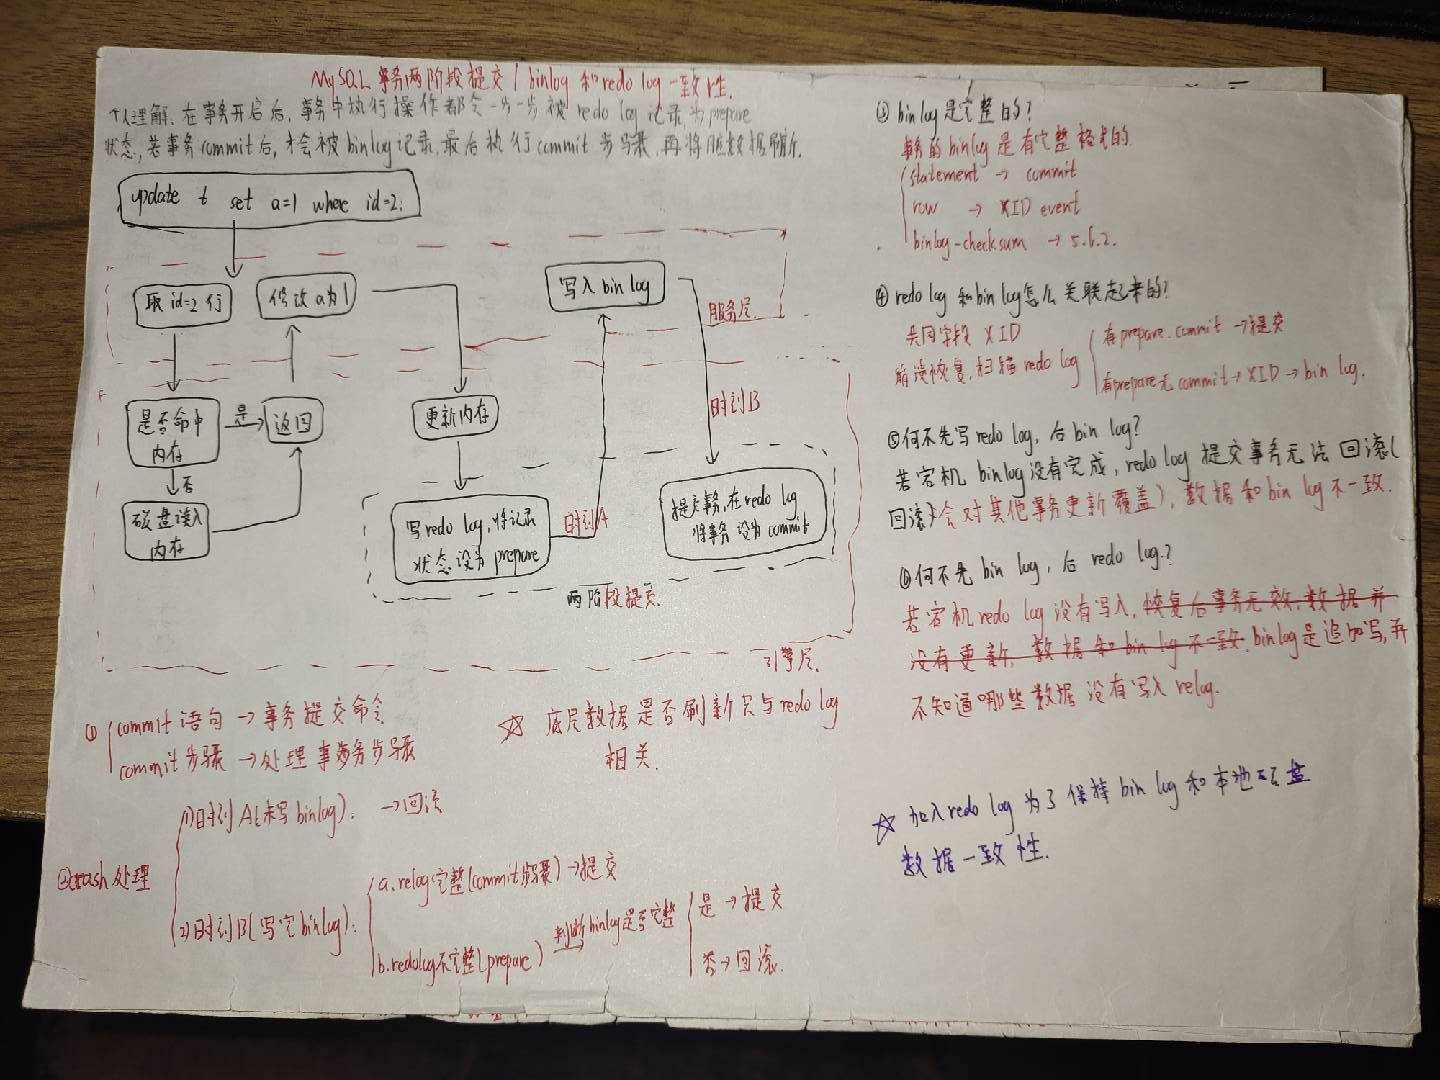 MySQL 事务两阶段提交 / binlog 和 redo log 一致性.
个人理解. 在事务开启后, 事务中执行操作都会一步一步被 redo log 记录为 prepare
状态, 若事务 commit 后, 才会被 binlog 记录, 最后执行 commit 步骤, 再将脏数据刷新.
update t set a=1 where id=2;
取 id=2 行
修改 a 为 1
写入 bin log
服务层.
是否命中
内存
是
返回
否
磁盘读入
内存
更新内存
时刻B
写 redo log, 将记录
状态设为 prepare
时刻A
提交事务, 在 redo log
将事务设为 commit
两阶段提交.
引擎层.
① commit 语句 → 事务提交命令
commit 步骤 → 处理事务步骤
☆ 底层数据是否刷新只与 redo log
相关.
② crash 处理
(1) 时刻 A (未写 binlog). → 回滚
(2) 时刻 B (写完 binlog):
a. relog 完整 (commit 步骤) → 提交
b. redolog 不完整 (prepare) 判断 binlog 是否完整
是 → 提交
否 → 回滚.
③ bin log 是完整的?
事务的 binlog 是有完整格式的.
statement → commit
row → XID event
binlog-checksum → 5.6.2.
④ redo log 和 bin log 怎么关联起来的?
共同字段 XID
崩溃恢复, 扫描 redo log
有 prepare. commit → 提交
有 prepare 无 commit → XID → bin log.
⑤ 何不先写 redo log, 后 bin log?
若宕机 binlog 没有完成, redo log 提交事务无法回滚(
回滚会对其他事务更新覆盖), 数据和 bin log 不一致.
⑥ 何不先 bin log, 后 redo log.?
若宕机 redo log 没有写入, 恢复后事务无效, 数据并
没有更新, 数据和 bin log 不一致. binlog 是追加写, 并
不知道哪些数据没有写入 relog.
☆ 加入 redo log 为了保持 bin log 和本地磁盘
数据一致性.